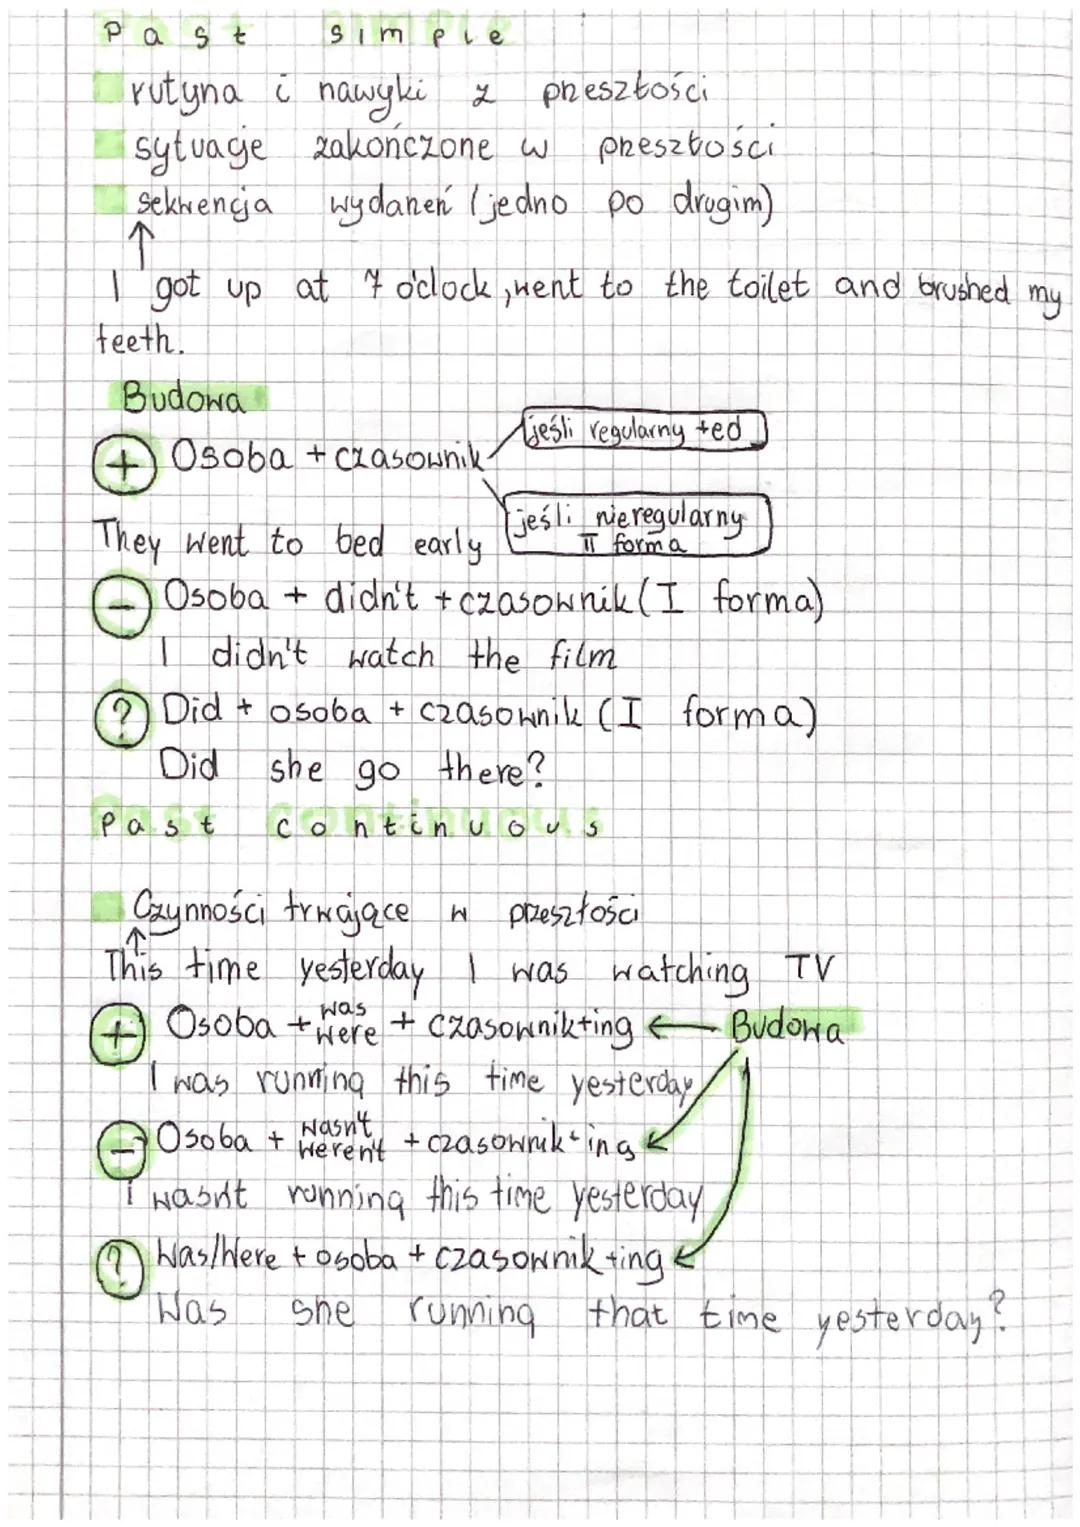 Past simple
rutyna i nawyki z przeszłości
sytuacje zakończone w przeszłości
sekwencja wydarzeń (jedno po drugim)
↑
I got up at 7 o'clock, went to the toilet and brushed my
teeth.
Budowa
jeśli regularny +ed
+ Osoba + czasownik
jeśli nieregularny
II forma
They went to bed early
- Osoba + didn't + czasownik (I forma)
I didn't watch the film
? Did + osoba + czasownik (I forma)
Did she go there?
Past continuous
Czynności trwające w przeszłości
↑
This time yesterday I was watching TV
+ Osoba + was/were + czasownik+ing ← Budowa
I was running this time yesterday
- Osoba + wasn't/weren't + czasownik+ing
I wasn't running this time yesterday
? Was/Were + osoba + czasownik+ing
Was she running that time yesterday?